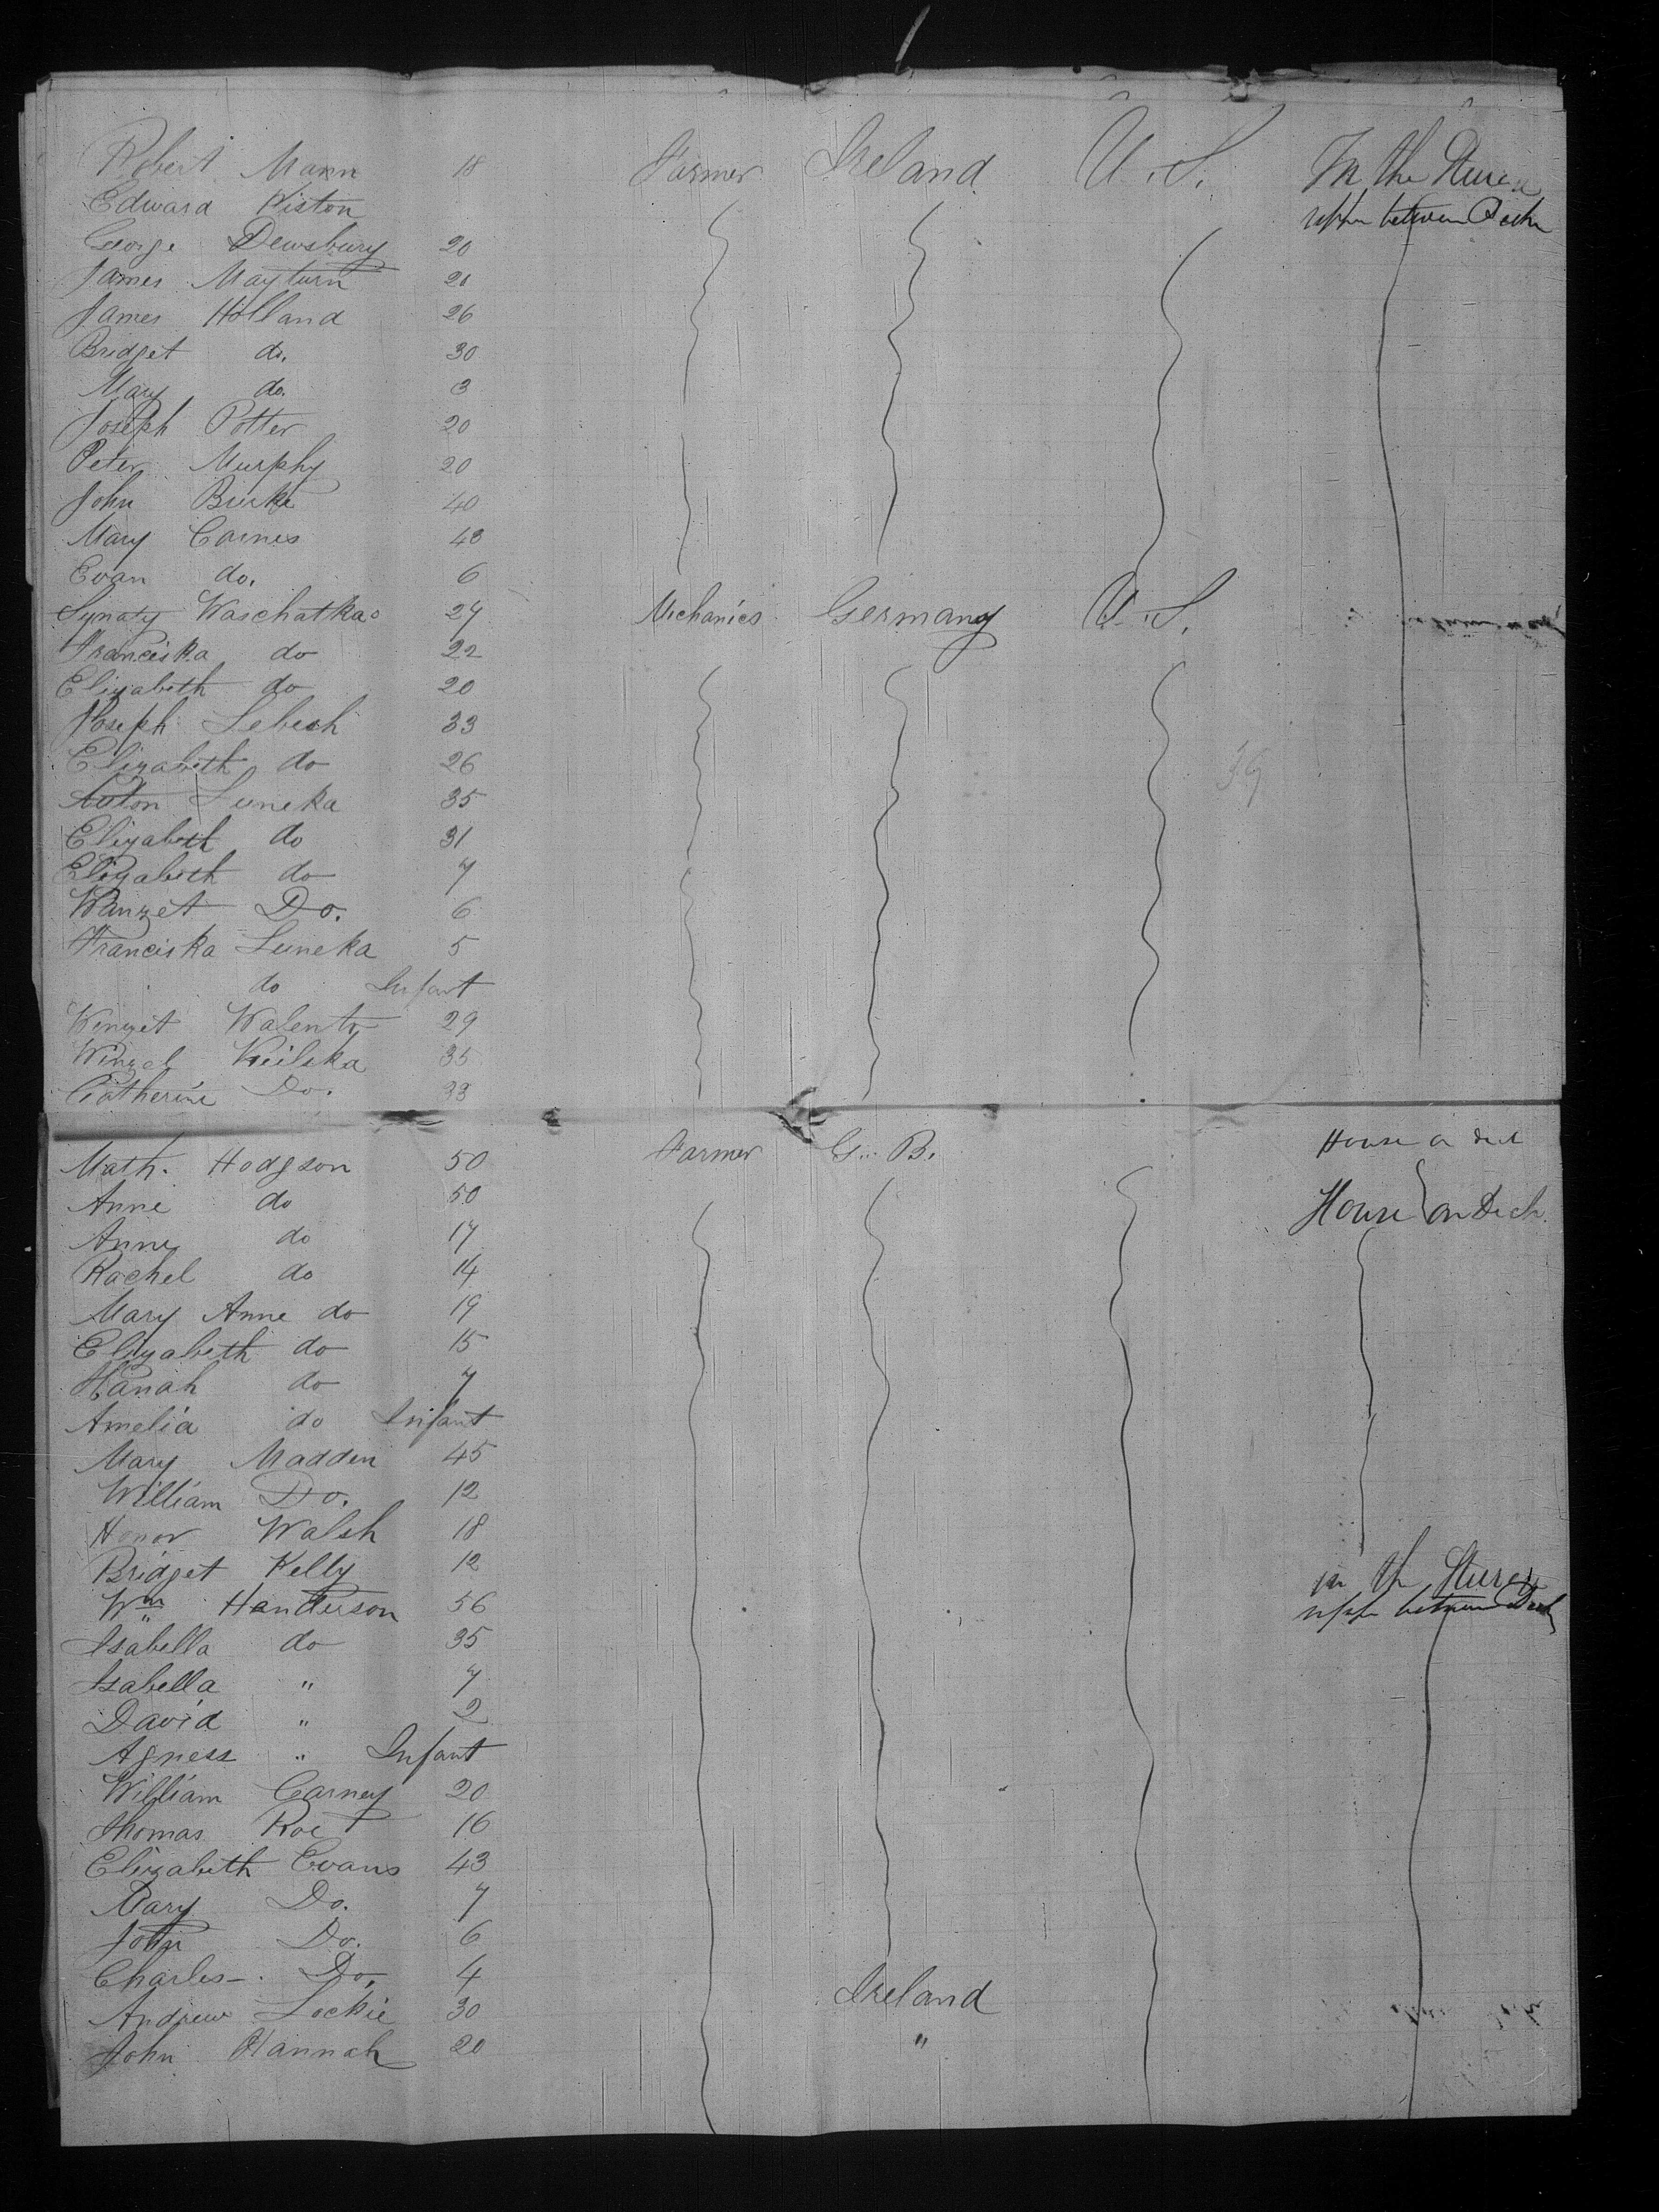 Robert Mann 18 Farmer Ireland U.S. In the Steerage
Edward Piston upper between Decks
George Dewsbury 20
James Mayturn 20
James Holland 26
Bridget do. 30
Mary do. 3
Joseph Potter 20
Peter Murphy 20
John Burke 40
Mary Carnes 43
Evan do. 6
Waschatka 24 Mechanics Germany U.S.
Franciska do 22
Elizabeth do 20
Joseph Lebech 33
Elizabeth do 26
Anton Luneka 35
Elizabeth do 31
Elizabeth do 7
Wanzet Do. 6
Franciska Luneka 5
do Infant
Wenzet Walenty 29
Winzel 35
Catherine Do. 33
Math. Hodgson 50 Farmer G.B. House on deck
Anne do 50 House on Deck
Anny do 17
Rachel do 14
Mary Anne do 19
Elizabeth do 15
Hanah do 7
Amelia do Infant
Mary Madden 45
William Do. 12
Honor Walsh 18
Bridget Kelly 12 in the Steerage
Wm Henderson 56 upper between Decks
Isabella do 35
Isabella " 7
David " 2
Agness " Infant
William Carney 20
Thomas Roe 16
Elizabeth Evans 43
Mary Do. 7
John Do. 6
Charles Do. 4
Andrew Lockie 30 Ireland
John Hannah 20 "